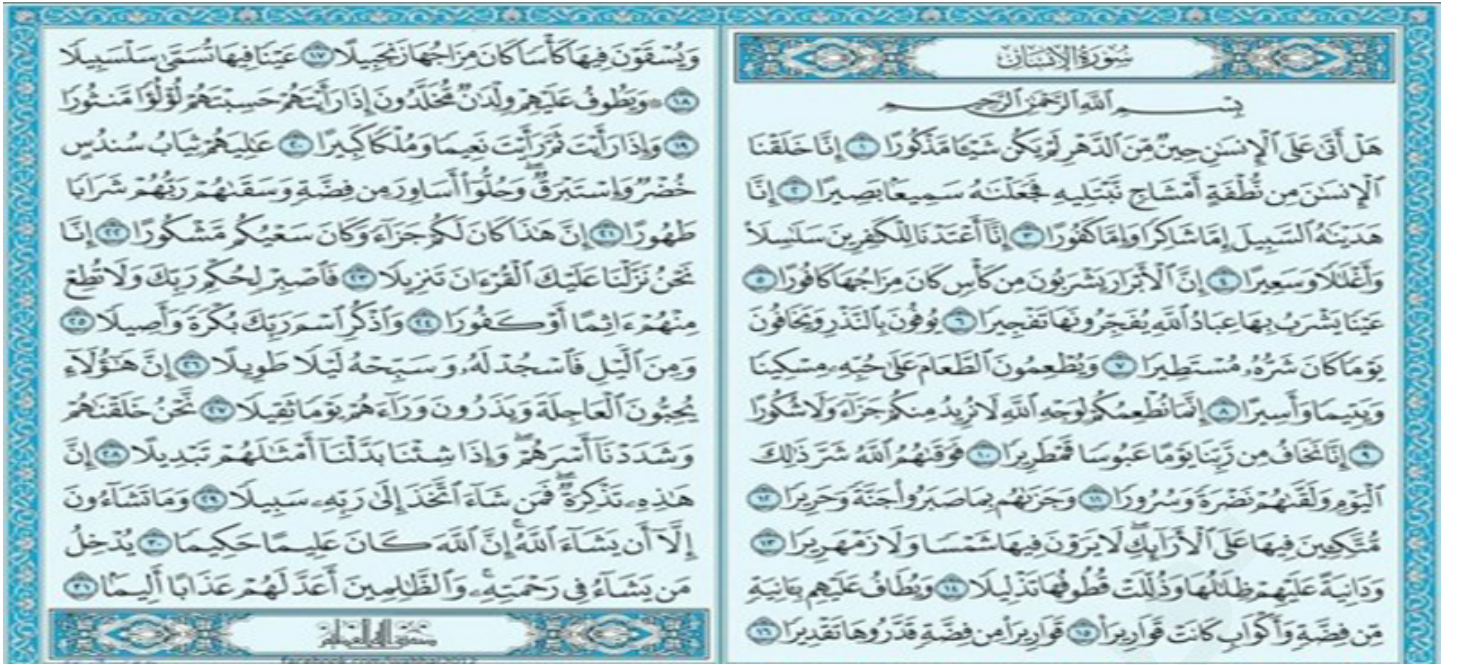 سُورَةُ الإِنسَان
بِسْمِ ٱللَّهِ ٱلرَّحْمَٰنِ ٱلرَّحِيمِ
هَلْ أَتَىٰ عَلَى ٱلْإِنسَٰنِ حِينٌ مِّنَ ٱلدَّهْرِ لَمْ يَكُن شَيْـًٔا مَّذْكُورًا ١ إِنَّا خَلَقْنَا
ٱلْإِنسَٰنَ مِن نُّطْفَةٍ أَمْشَاجٍ نَّبْتَلِيهِ فَجَعَلْنَٰهُ سَمِيعًۢا بَصِيرًا ٢ إِنَّا
هَدَيْنَٰهُ ٱلسَّبِيلَ إِمَّا شَاكِرًا وَإِمَّا كَفُورًا ٣ إِنَّآ أَعْتَدْنَا لِلْكَٰفِرِينَ سَلَٰسِلَا۟
وَأَغْلَٰلًا وَسَعِيرًا ٤ إِنَّ ٱلْأَبْرَارَ يَشْرَبُونَ مِن كَأْسٍ كَانَ مِزَاجُهَا كَافُورًا ٥
عَيْنًا يَشْرَبُ بِهَا عِبَادُ ٱللَّهِ يُفَجِّرُونَهَا تَفْجِيرًا ٦ يُوفُونَ بِٱلنَّذْرِ وَيَخَافُونَ
يَوْمًا كَانَ شَرُّهُۥ مُسْتَطِيرًا ٧ وَيُطْعِمُونَ ٱلطَّعَامَ عَلَىٰ حُبِّهِۦ مِسْكِينًا
وَيَتِيمًا وَأَسِيرًا ٨ إِنَّمَا نُطْعِمُكُمْ لِوَجْهِ ٱللَّهِ لَا نُرِيدُ مِنكُمْ جَزَآءً وَلَا شُكُورًا
٩ إِنَّا نَخَافُ مِن رَّبِّنَا يَوْمًا عَبُوسًا قَمْطَرِيرًا ١٠ فَوَقَىٰهُمُ ٱللَّهُ شَرَّ ذَٰلِكَ
ٱلْيَوْمِ وَلَقَّىٰهُمْ نَضْرَةً وَسُرُورًا ١١ وَجَزَىٰهُم بِمَا صَبَرُوا۟ جَنَّةً وَحَرِيرًا ١٢
مُّتَّكِـِٔينَ فِيهَا عَلَى ٱلْأَرَآئِكِ ۖ لَا يَرَوْنَ فِيهَا شَمْسًا وَلَا زَمْهَرِيرًا ١٣
وَدَانِيَةً عَلَيْهِمْ ظِلَٰلُهَا وَذُلِّلَتْ قُطُوفُهَا تَذْلِيلًا ١٤ وَيُطَافُ عَلَيْهِم بِـَٔانِيَةٍ
مِّن فِضَّةٍ وَأَكْوَابٍ كَانَتْ قَوَارِيرَا۠ ١٥ قَوَارِيرَا۟ مِن فِضَّةٍ قَدَّرُوهَا تَقْدِيرًا ١٦
وَيُسْقَوْنَ فِيهَا كَأْسًا كَانَ مِزَاجُهَا زَنجَبِيلًا ١٧ عَيْنًا فِيهَا تُسَمَّىٰ سَلْسَبِيلًا
١٨ ۞ وَيَطُوفُ عَلَيْهِمْ وِلْدَٰنٌ مُّخَلَّدُونَ إِذَا رَأَيْتَهُمْ حَسِبْتَهُمْ لُؤْلُؤًا مَّنثُورًا
١٩ وَإِذَا رَأَيْتَ ثَمَّ رَأَيْتَ نَعِيمًا وَمُلْكًا كَبِيرًا ٢٠ عَٰلِيَهُمْ ثِيَابُ سُندُسٍ
خُضْرٌ وَإِسْتَبْرَقٌ ۖ وَحُلُّوٓا۟ أَسَاوِرَ مِن فِضَّةٍ وَسَقَىٰهُمْ رَبُّهُمْ شَرَابًا
طَهُورًا ٢١ إِنَّ هَٰذَا كَانَ لَكُمْ جَزَآءً وَكَانَ سَعْيُكُم مَّشْكُورًا ٢٢ إِنَّا
نَحْنُ نَزَّلْنَا عَلَيْكَ ٱلْقُرْءَانَ تَنزِيلًا ٢٣ فَٱصْبِرْ لِحُكْمِ رَبِّكَ وَلَا تُطِعْ
مِنْهُمْ ءَاثِمًا أَوْ كَفُورًا ٢٤ وَٱذْكُرِ ٱسْمَ رَبِّكَ بُكْرَةً وَأَصِيلًا ٢٥
وَمِنَ ٱلَّيْلِ فَٱسْجُدْ لَهُۥ وَسَبِّحْهُ لَيْلًا طَوِيلًا ٢٦ إِنَّ هَٰٓؤُلَآءِ
يُحِبُّونَ ٱلْعَاجِلَةَ وَيَذَرُونَ وَرَآءَهُمْ يَوْمًا ثَقِيلًا ٢٧ نَّحْنُ خَلَقْنَٰهُمْ
وَشَدَدْنَآ أَسْرَهُمْ ۖ وَإِذَا شِئْنَا بَدَّلْنَآ أَمْثَٰلَهُمْ تَبْدِيلًا ٢٨ إِنَّ
هَٰذِهِۦ تَذْكِرَةٌ ۖ فَمَن شَآءَ ٱتَّخَذَ إِلَىٰ رَبِّهِۦ سَبِيلًا ٢٩ وَمَا تَشَآءُونَ
إِلَّآ أَن يَشَآءَ ٱللَّهُ ۚ إِنَّ ٱللَّهَ كَانَ عَلِيمًا حَكِيمًا ٣٠ يُدْخِلُ
مَن يَشَآءُ فِى رَحْمَتِهِۦ ۚ وَٱلظَّٰلِمِينَ أَعَدَّ لَهُمْ عَذَابًا أَلِيمًۢا ٣١